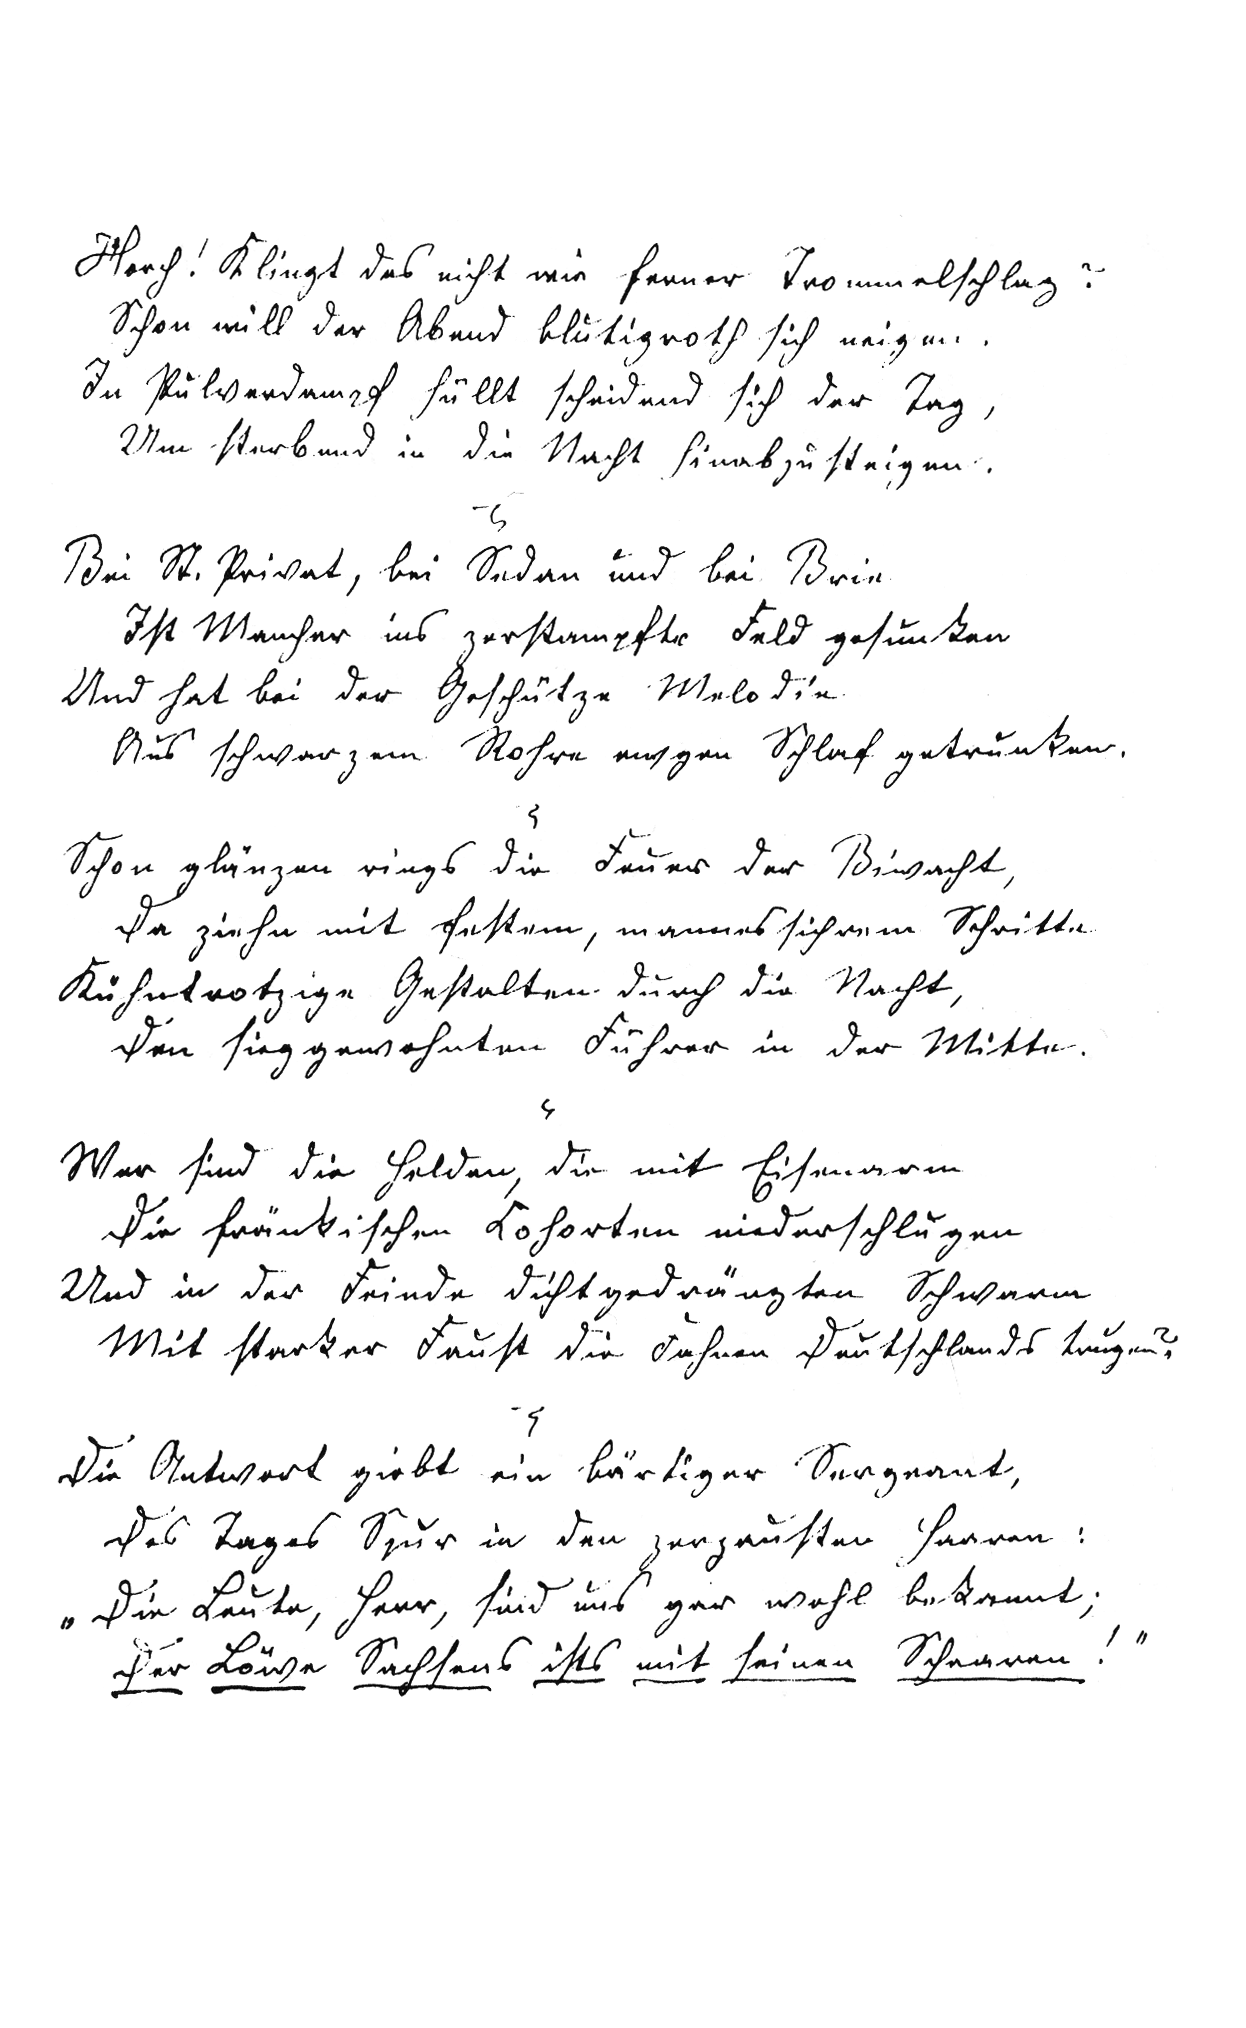 Horch! Klingt das nicht wie ferner Trommelschlag?
Schon will der Abend blutigroth sich neigen.
In Pulverdampf hüllt scheidend sich der Tag,
Um sterbend in die Nacht hinabzusteigen.
Bei St. Privat, bei Sedan und bei Brie
Ist Mancher ins zerstampfte Feld gesunken
Und hat bei der Geschütze Melodie
Aus schwarzem Rohre ewgen Schlaf getrunken.
Schon glänzen rings die Feuer der Biwacht,
Da ziehn mit festem, mannessichrem Schritte
Kühntrotzige Gestalten durch die Nacht,
Den sieggewohnten Führer in der Mitte.
Wer sind die Helden, die mit Eisenarm
Die fränkischen Cohorten niederschlugen
Und in der Feinde dichtgedrängten Schwarm
Mit starker Faust die Fahnen Deutschlands trugen?
Die Antwort giebt ein bärtiger Sergeant,
Des Tages Spur in den zerzausten Haaren:
„Die Leute, Herr, sind uns gar wohl bekannt;
Der Löwe Sachsens ists mit seinen Schaaren!"